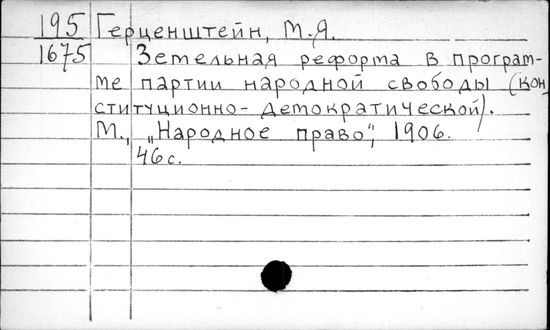 195 Герценштейн, М.Я.
1675 Земельная реформа в програм-
ме партии народной свободы (кон
ституционно-демократической).
М., „Народное право", 1906.
46 с.